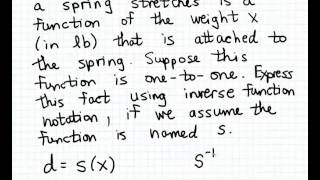 a spring stretches is a
function of the weight x
(in lb) that is attached to
the spring. Suppose this
function is one-to-one. Express
this fact using inverse function
notation, if we assume the
function is named s.
d = s(x) s⁻¹